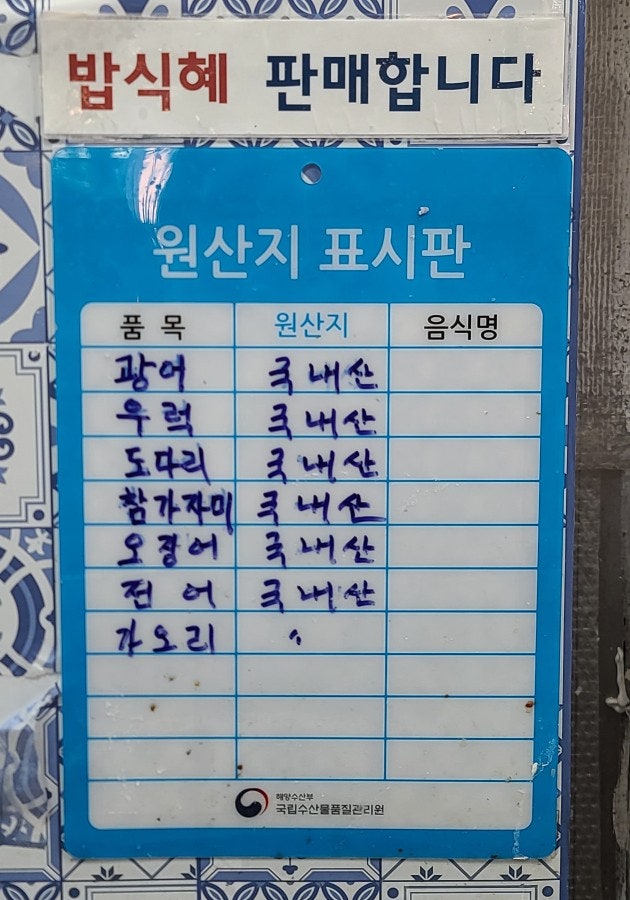 밥식혜 판매합니다
원산지 표시판
품 목 원산지 음식명
광어 국내산
우럭 국내산
도다리 국내산
참가자미 국내산
오징어 국내산
전어 국내산
가오리 〃
해양수산부
국립수산물품질관리원